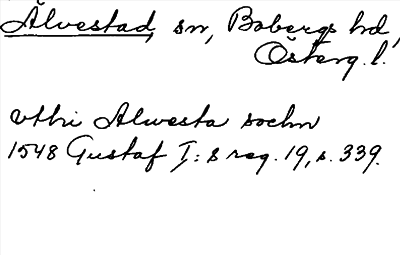 Älvestad, sn, Bobergs hd,
Österg. l.
vthi Alwesta sochn
1548 Gustaf I:s reg. 19, s. 339.